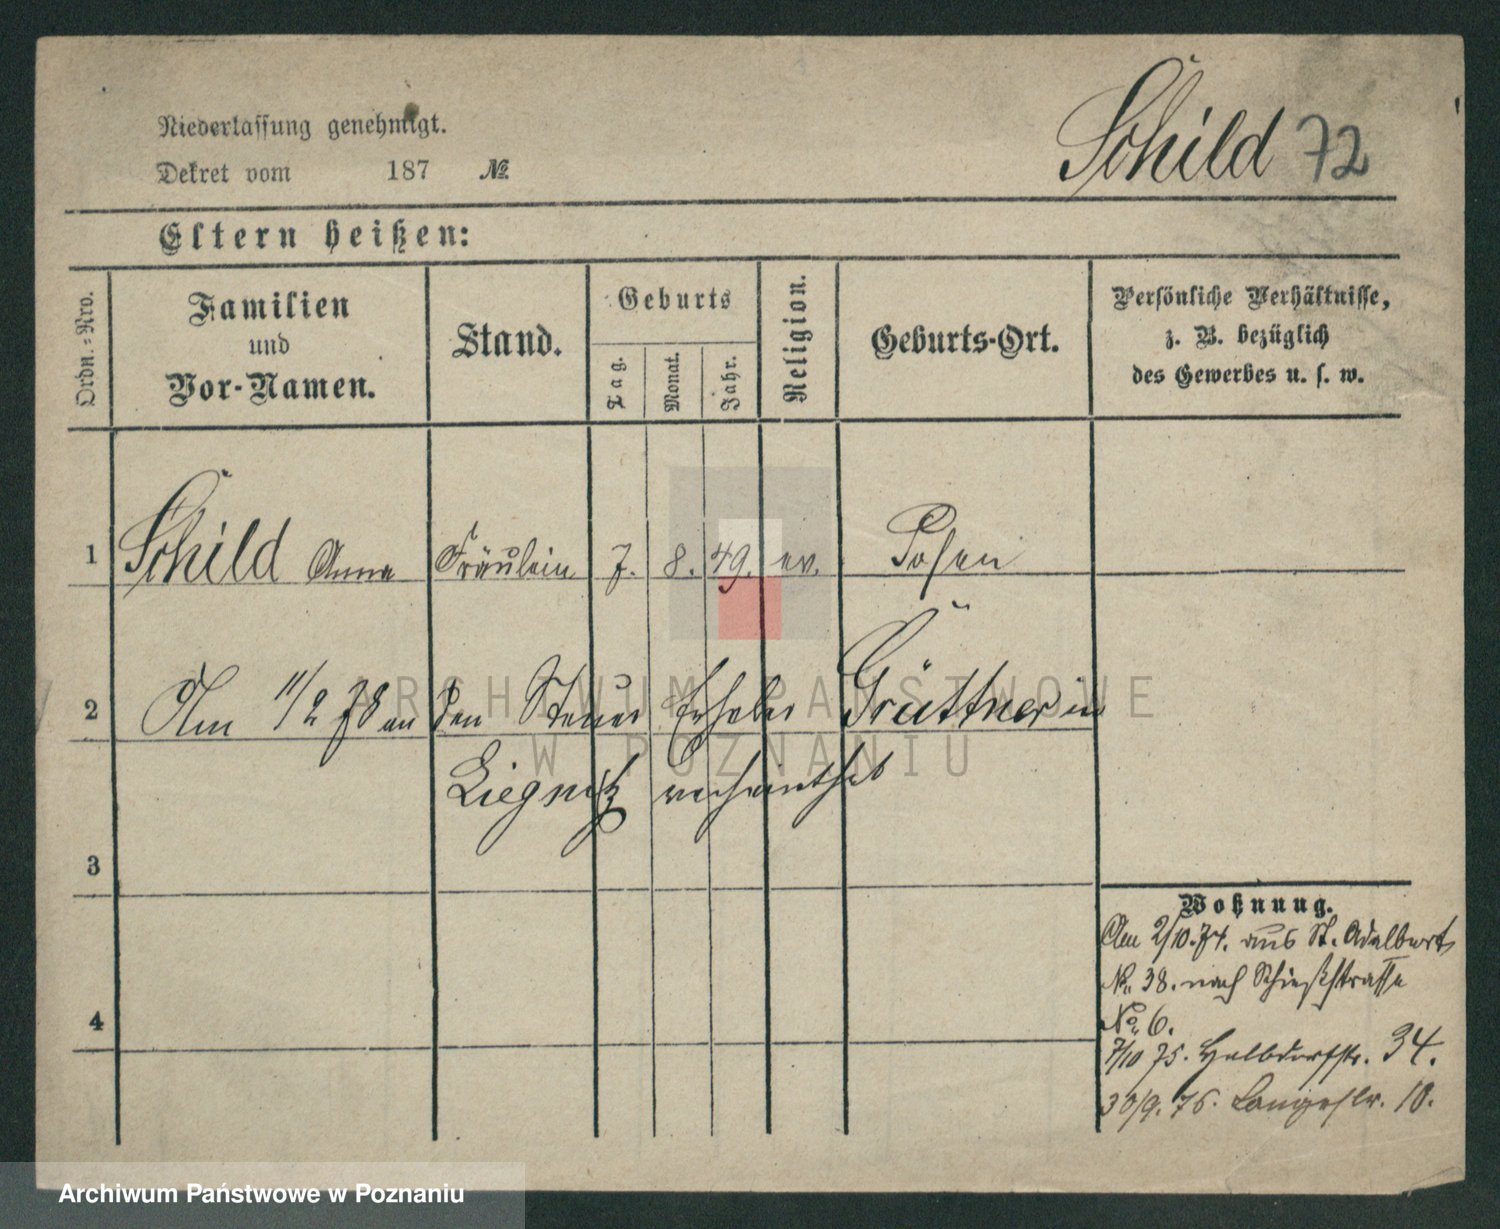 Niederlassung genehmigt.
Dekret vom 187 №
Schild 72
Eltern heißen:
Ordn.=Nro.
Familien
und
Vor-Namen.
Stand.
Geburts
Tag.
Monat.
Jahr.
Religion.
Geburts-Ort.
Persönliche Verhältnisse,
z. B. bezüglich
des Gewerbes u. s. w.
1 Schild Anna Fräulein 7. 8. 49. ev. Posen
2 Am 11/2 78 an den Steuer Erheber Grüttner in
Liegnitz verheirathet
3
4
Wohnung.
Am 2/10.74. aus St. Adalbert
No. 38. nach Schießstrasse
No. 6.
7/10 75. Halbdorfstr. 34.
30/9. 76. Langestr. 10.
ARCHIWUM PAŃSTWOWE
W POZNANIU
Archiwum Państwowe w Poznaniu